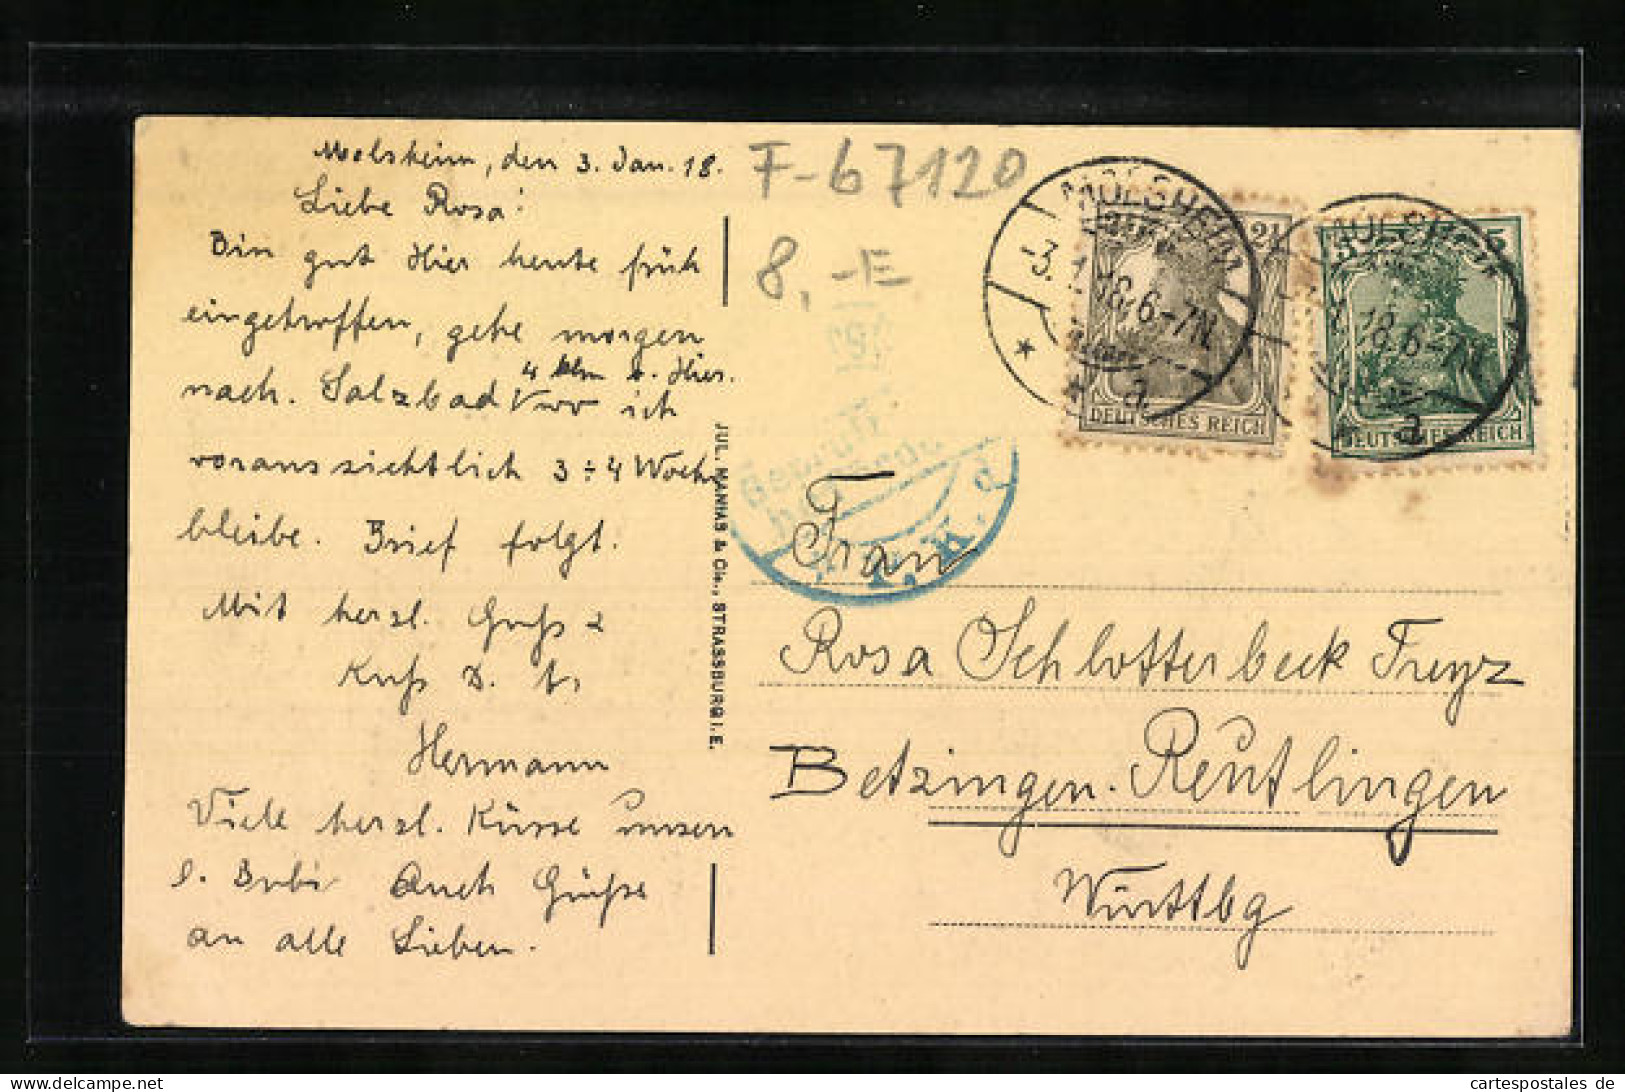 Molsheim, den 3. Jan. 18.
Liebe Rosa!
Bin gut Hier heute früh
eingetroffen, gehe morgen
nach. Salzbad 4 klm v. Hier. wo ich
voraussichtlich 3 ÷ 4 Woch
bleibe. Brief folgt.
Mit herzl. Gruß &
Kuß D. tr
Hermann
Viele herzl. Küsse unsern
l. Bubi Auch Grüße
an alle Lieben.
JUL. MANIAS & Cie., STRASSBURG I. E.
F-67120
8,-E
MOLSHEIM
-3.1.18.6-7N.
* * a
2½
DEUTSCHES REICH
MOLSHEIM
1.18.6-7N.
a
5
DEUTSCHES REICH
Geprüft
Frau
Rosa Schlotterbeck Freyz
Betzingen. Reutlingen
Württbg
cartespostales de